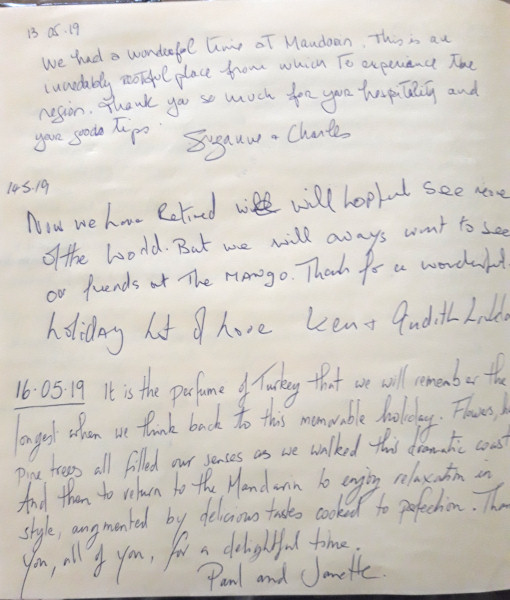 13.05.19
We had a wonderful time at Mandarin. This is an
incredibly restful place from which to experience the
region. Thank you so much for your hospitality and
your good tips.
Suzanne + Charles
14.5.19
Now we have Retired will hopful see more
of the world. But we will aways want to see
our friends at The MANGO. Thank for a wonderful
holiday lot of love Ken + Judith
16.05.19 It is the perfume of Turkey that we will remember the
longest when we think back to this memorable holiday. Flowers,
pine trees all filled our senses as we walked this dramatic coast
And then to return to the Mandarin to enjoy relaxation in
style, augmented by delicious tastes cooked to perfection.
you, all of you, for a delightful time.
Paul and Janette.